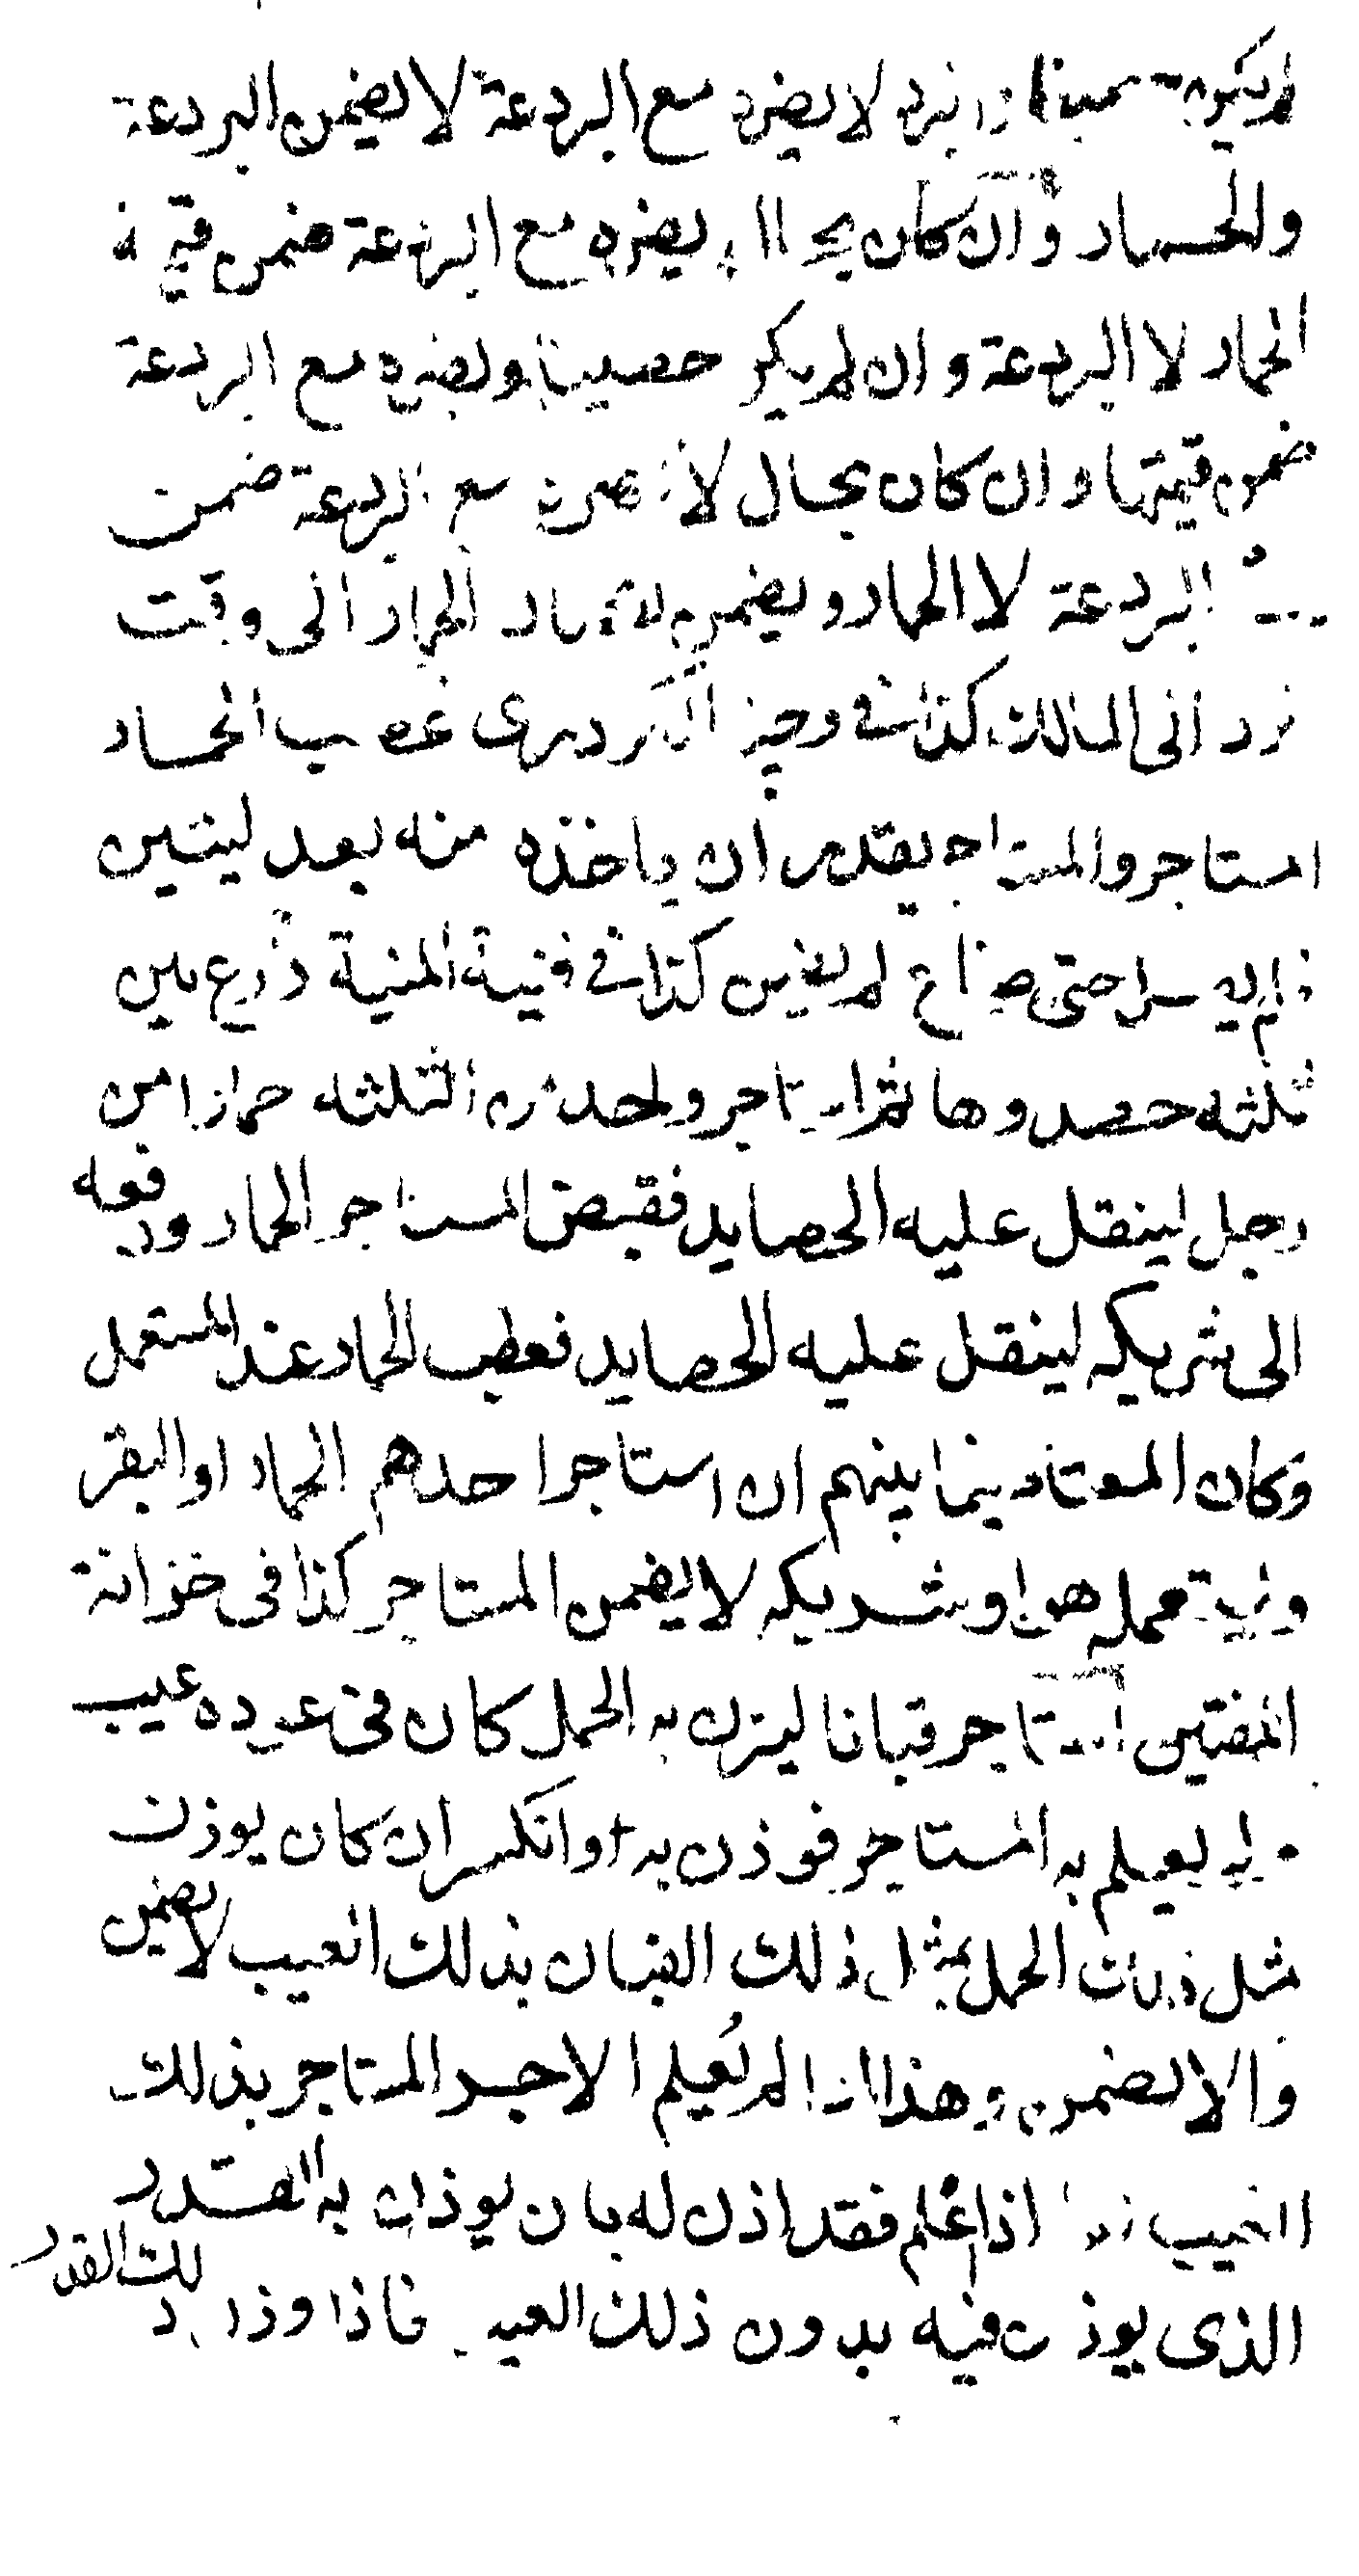 لا يضره مع البردعة لا يضمن البردعة
والحمار وان كان بحال يضره مع البردعة ضمن قيمة
الحمار لا البردعة وان لم يكن حصينا ويضره مع البردعة
ضمن قيمتها وان كان بحال لا يضره مع البردعة ضمن
البردعة لا الحمار ويضمن الحمار الى وقت
يرد الى المالك كذا في وجيز الكردرى غصب الحمار
المستاجر والمستاجر يقدر ان ياخذه منه بعد ليتين
حتى ضاع لم يضمن كذا في قنية المنية زرع بين
ثلثه حصدوها ثم استاجر واحد من الثلثه حمارا من
رجل لينقل عليه الحصايد فقبض المستاجر الحمار ودفعه
الى شريكه لينقل عليه الحصايد فعطب الحمار عند المستعمل
وكان المعتاد فيما بينهم ان استاجر احدهم الحمار او البقر
ويستعمله هو او شريكه لا يضمن المستاجر كذا فى خزانة
المفتين استاجر قبانا ليزن به الحمل كان فى عموده عيب
لم يعلم به المستاجر فوزن به وانكسر ان كان يوزن
مثل ذلك الحمل بمثل ذلك القبان بذلك العيب لا يضمن
والا يضمن وهذا اذا لم يُعلم الاجر المستاجر بذلك
العيب اما اذا اعلم فقد اذن له بان يوزن به القدر
الذى يوزن فيه بدون ذلك العيب فاذا وزن ذلك القدر